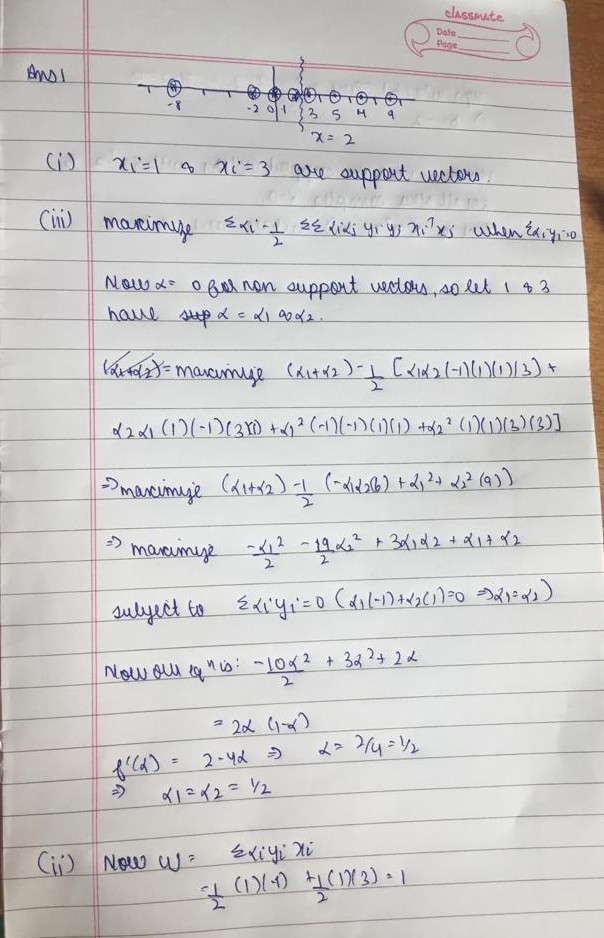 classmate
Date
Page
Ans 1
-8 -2 0 1 3 5 4 9
x = 2
(i) xi=1 & xi=3 are support vectors.
(iii) maximize Σαi - 1/2 ΣΣ αiαj yi yj xiᵀxj when Σαiyi=0
Now α= 0 for non support vectors, so let 1 & 3
have α = α1 & α2.
(α1+α2) = maximize (α1+α2) - 1/2 [α1α2(-1)(1)(1)(3) +
α2α1 (1)(-1)(3)(1) + α1² (-1)(-1)(1)(1) + α2² (1)(1)(3)(3)]
⇒ maximize (α1+α2) - 1/2 (-α1α2(6) + α1² + α2² (9))
⇒ maximize -α1²/2 - 9/2 α2² + 3α1α2 + α1 + α2
subject to Σαiyi=0 (α1(-1)+α2(1)=0 ⇒ α1=α2)
Now our eqn is: -10α²/2 + 3α² + 2α
= 2α (1-α)
f'(α) = 2-4α ⇒ α= 2/4 = 1/2
⇒ α1 = α2 = 1/2
(ii) Now W = Σαiyi xi
= 1/2 (1)(-1) + 1/2 (1)(3) = 1